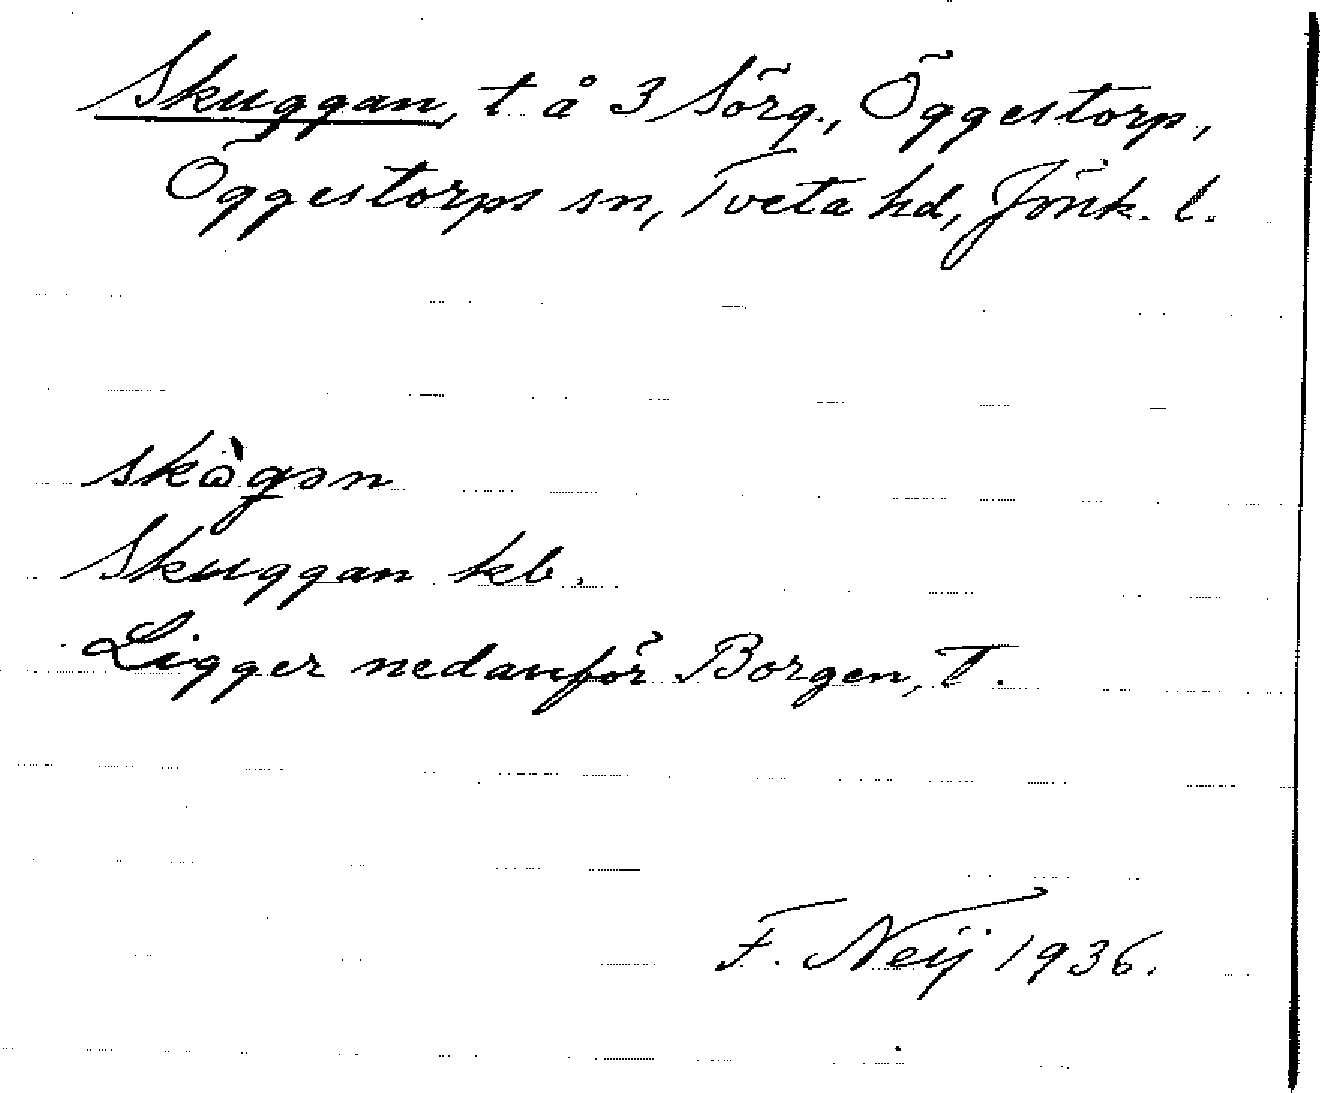 Skuggan, t. å 3 Sörg., Öggestorp,
Öggestorps sn, Tveta hd, Jönk. l.
skògən
Skuggan kb.
Ligger nedanför Borgen, T.
F. Neij 1936.